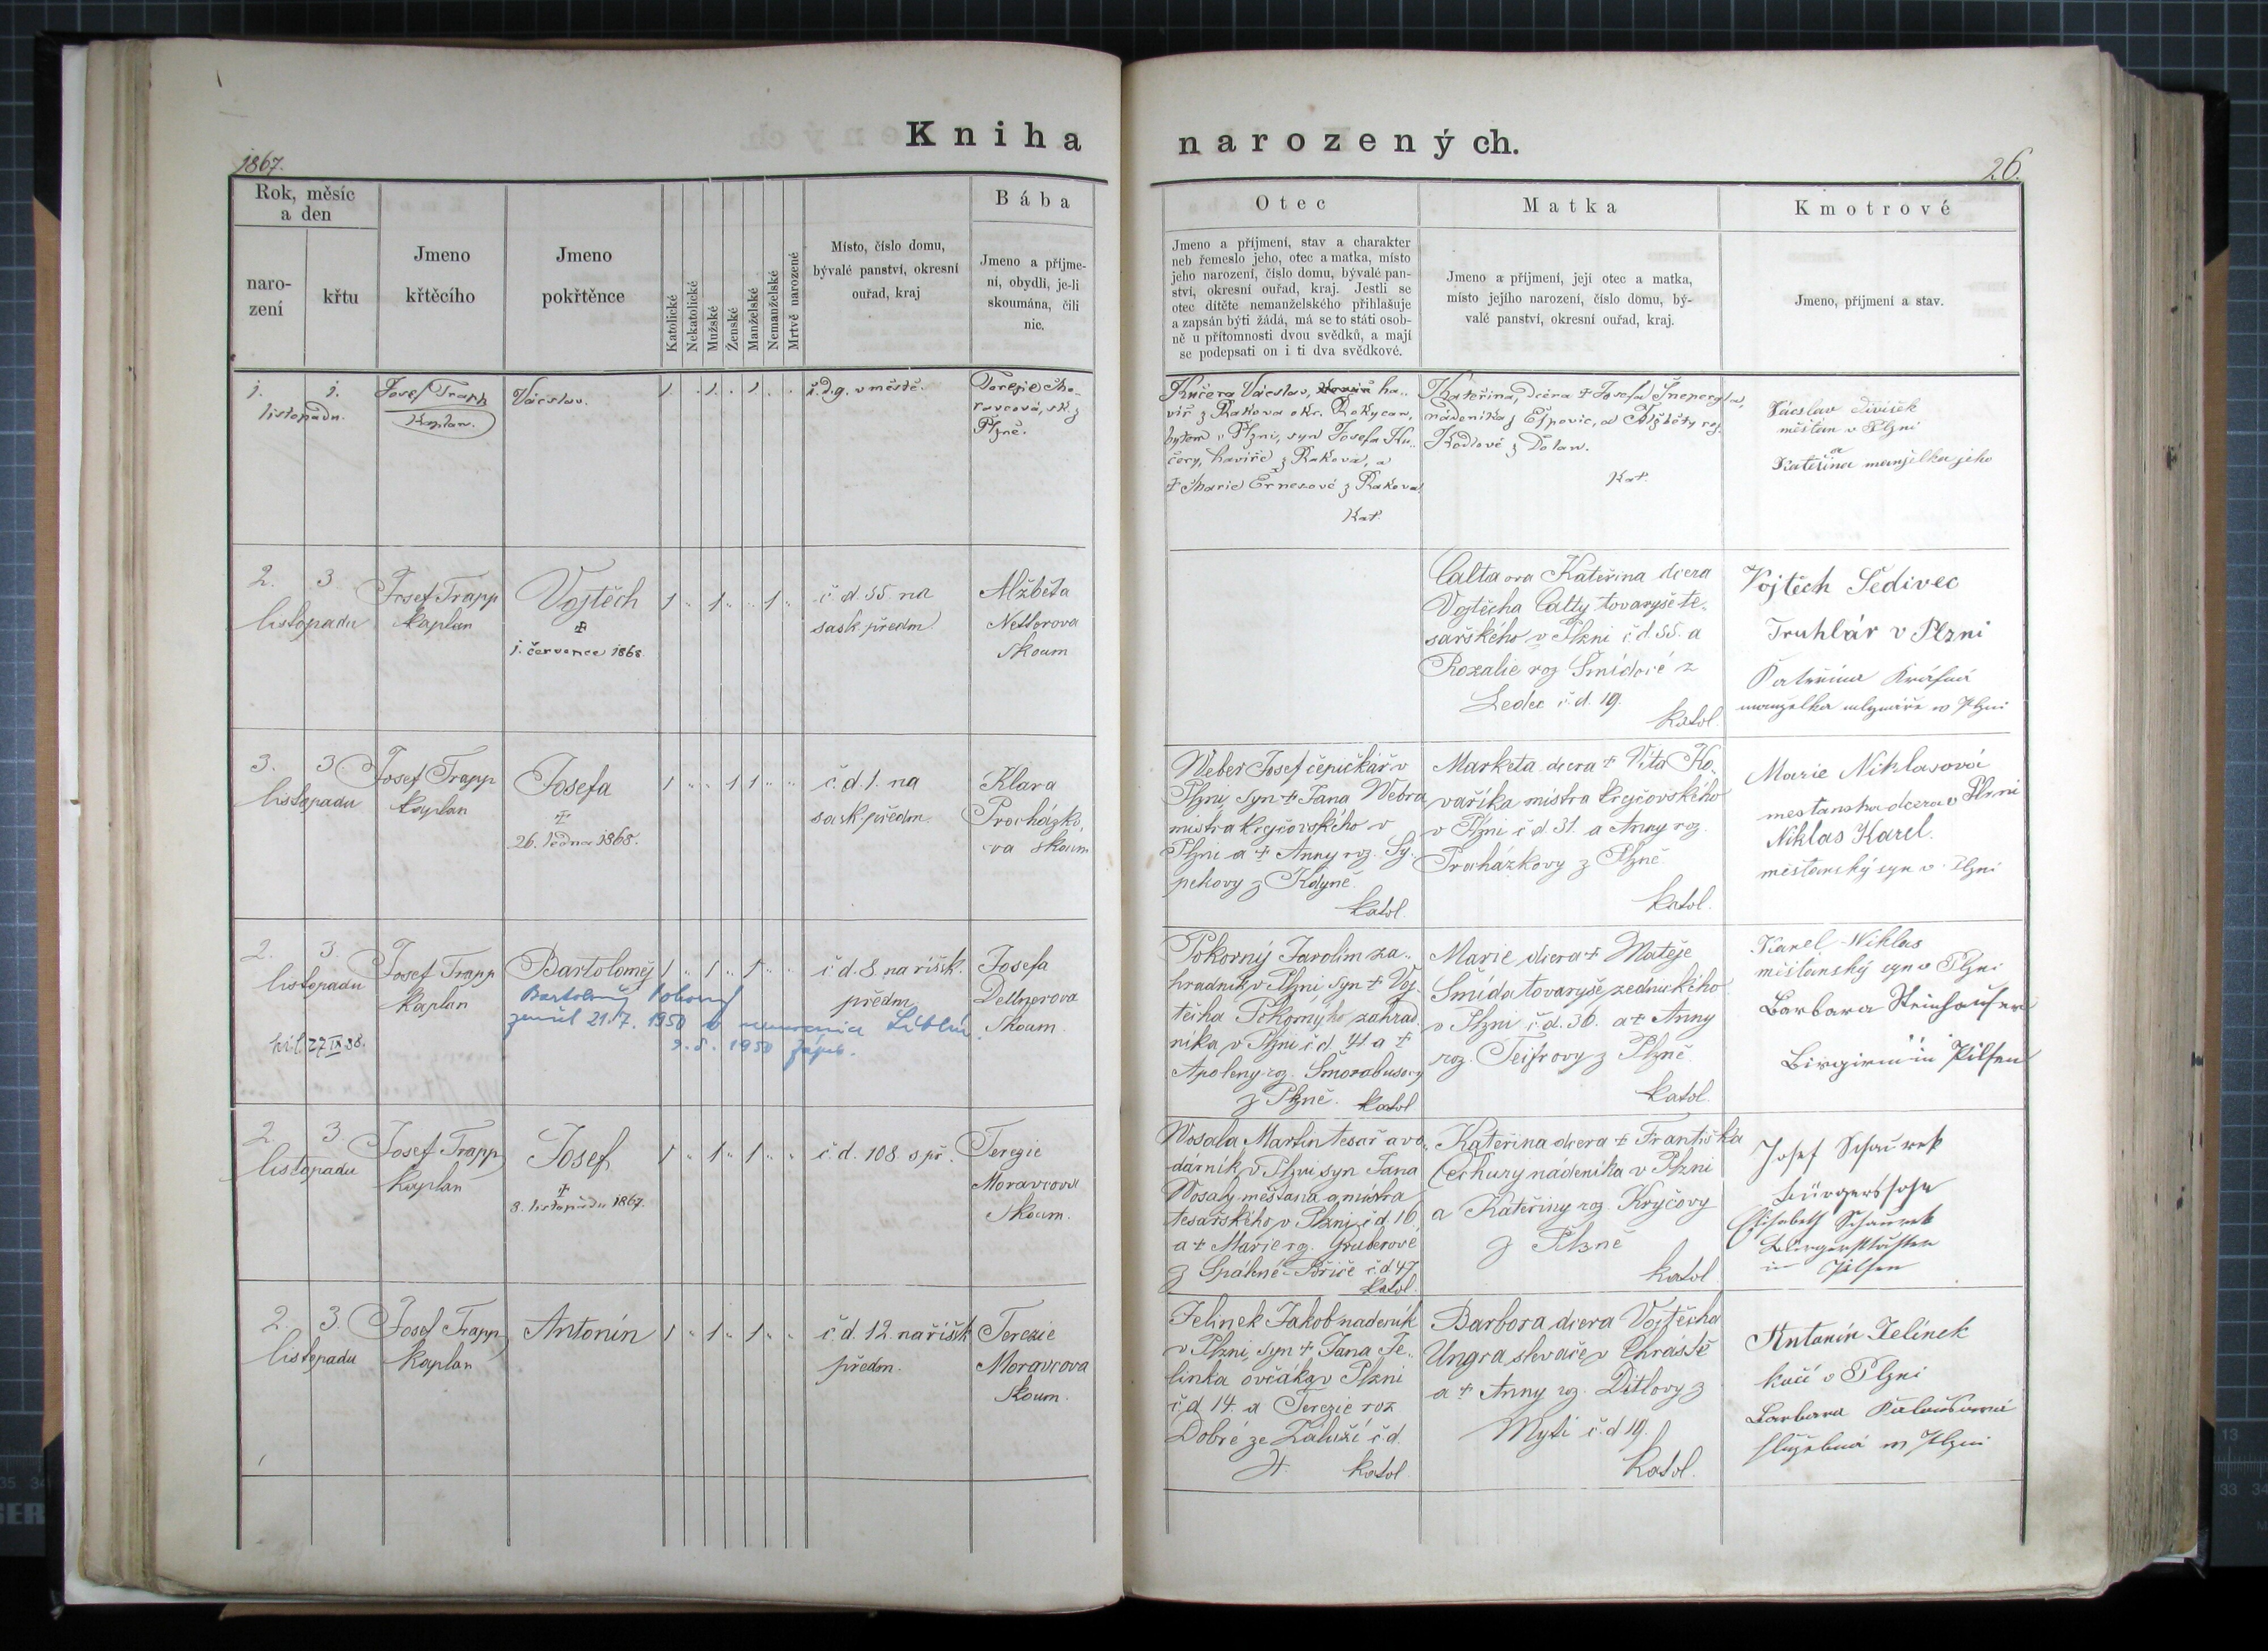 Kniha
narozených.
1867.
26.
Rok, měsíc
a den
naro-
zení
křtu
Jmeno
křtěcího
Jmeno
pokřtěnce
Katolické
Nekatolické
Mužské
Ženské
Manželské
Nemanželské
Mrtvě narozené
Místo, číslo domu,
bývalé panství, okresní
ouřad, kraj
Bába
Jmeno a příjme-
ní, obydlí, je-li
skoumána, čili
nic.
Otec
Jmeno a příjmení, stav a charakter
neb řemeslo jeho, otec a matka, místo
jeho narození, číslo domu, bývalé pan-
ství, okresní ouřad, kraj. Jestli se
otec dítěte nemanželského přihlašuje
a zapsán býti žádá, má se to státi osob-
ně u přítomnosti dvou svědků, a mají
se podepsati on i ti dva svědkové.
Matka
Jmeno a příjmení, její otec a matka,
místo jejího narození, číslo domu, bý-
valé panství, okresní ouřad, kraj.
Kmotrové
Jmeno, příjmení a stav.
1. 1.
listopadu.
Josef Trapp
Kaplan.
Václav.
1 . 1 . 1 . .
č. d. 9. v městě.
Terezie Mo-
ravcová, sk. z
Plzně.
Kučera Václav, ha-
víř z Rakova okr. Rokycan,
bytem v Plzni, syn Josefa Ku-
čery, havíře z Rakova, a
† Marie Ernezové z Rakova
Kat.
Kateřina, dcera † Josefa
nádeníka z Ejpovic, a Alžběty roz.
Kodlové z Dolan.
Kat.
Václav Diviśek
měštan v Plzni
a
Kateřina manželka jeho
2. 3
listopadu
Josef Trapp
kaplan
Vojtěch
†
1. července 1868.
1 " 1 " " 1 "
č d. 55. na
sask předm
Alžběta
Netlerova
skoum
Calta ova Kateřina dcera
Vojtěcha Calty tovaryše te-
sařského v Plzni č d. 55. a
Rozalie roz Šmídové z
Ledec č. d. 19.
katol.
Vojtěch Šedivec
Truhlár v Plzni
Kateřina Krásná
manželka mlynáře v Plzni
3. 3
listopadu
Josef Trapp
kaplan
Josefa
†
26. ledna 1868.
1 " " 1 1 " "
č. d. 1. na
sask. předm.
Klara
Procházko-
va skoum
Weber Josef čepičkář v
Plzni, syn † Jana Webra
mistra krejčovského v
Plzni a † Anny roz. Sy-
pekovy z Kdyně.
katol.
Marketa dcera † Víta Ko-
vaříka mistra krejčovského
v Plzni č d. 31. a Anny roz.
Procházkovy z Plzně.
katol.
Marie Niklasová
mestanska dcera v Plzni
Niklas Karel.
měštanský syn v Plzni
2. 3.
listopadu
křl. 27 IX 38.
Josef Trapp
kaplan
Bartoloměj
Bartoloměj Pokorný
zemřel 21. 7. 1950 v Liblín
9. 8. 1950 zápis.
1 " 1 " 1 " "
č d. 8. na říšsk.
předm
Josefa
Dellnerova
skoum.
Pokorný Jarolim za-
hradník v Plzni syn † Voj-
těcha Pokornýho zahrad-
níka v Plzni č. d. 41 a †
Apoleny roz.
z Plzně. katol
Marie dcera † Matěje
Šmída tovaryše zednického
v Plzni č. d. 36. a † Anny
roz. z Plzně.
katol.
Karel Niklas
měštanský syn v Plzni
Barbara Steinhauser
in Pilsen
2. 3.
listopadu
Josef Trapp
kaplan
Josef
†
8. listopadu 1867.
1 " 1 " 1 " "
č. d. 108. s př.
Terezie
Moravcova
skoum.
Wosala Martin tesař a vo-
dárník v Plzni syn Jana
Wosaly měštana a mistra
tesařského v Plzni č d. 16.
a † Marie rz. Gruberové
z Spálené-Poříčé č. d 47
katol.
Kateřina dcera † Františka
Čechury nádeníka v Plzni
a Kateřiny roz. Kryčovy
z Plzně
katol
Josef Schaurek
Bürgerssohn
Elisabeth Schaurek
Bürgerstochter
in Pilsen
2. 3.
listopadu
Josef Trapp
kaplan
Antonín
1 " 1 " 1 " "
č. d. 12. na říšsk
předm.
Terezie
Moravcova
skoum.
Jelinek Jakob nadeník
v Plzni, syn † Jana Je-
línka ovčáka v Plzni
č. d 14. a Terezie roz
Dobré ze Záluží č. d.
katol.
Barbora dcera Vojtěcha
Ungra slevače v Chrástě
a † Anny rz. Ditlovy z
Mýti č. d 19.
katol.
Antonín Jelínek
kočí v Plzni
Barbara
služebná v Plzni